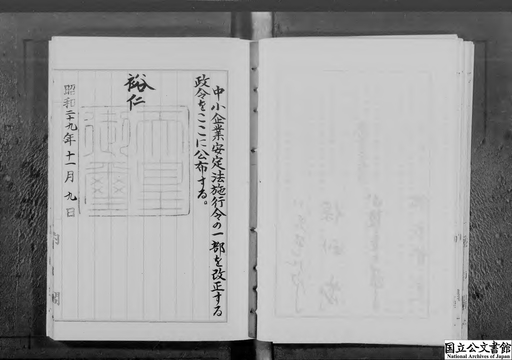 中小企業安定法施行令の一部を改正する
政令をここに公布する。
裕仁
天皇
御璽
昭和二十九年十一月九日
国立公文書館
National Archives of Japan